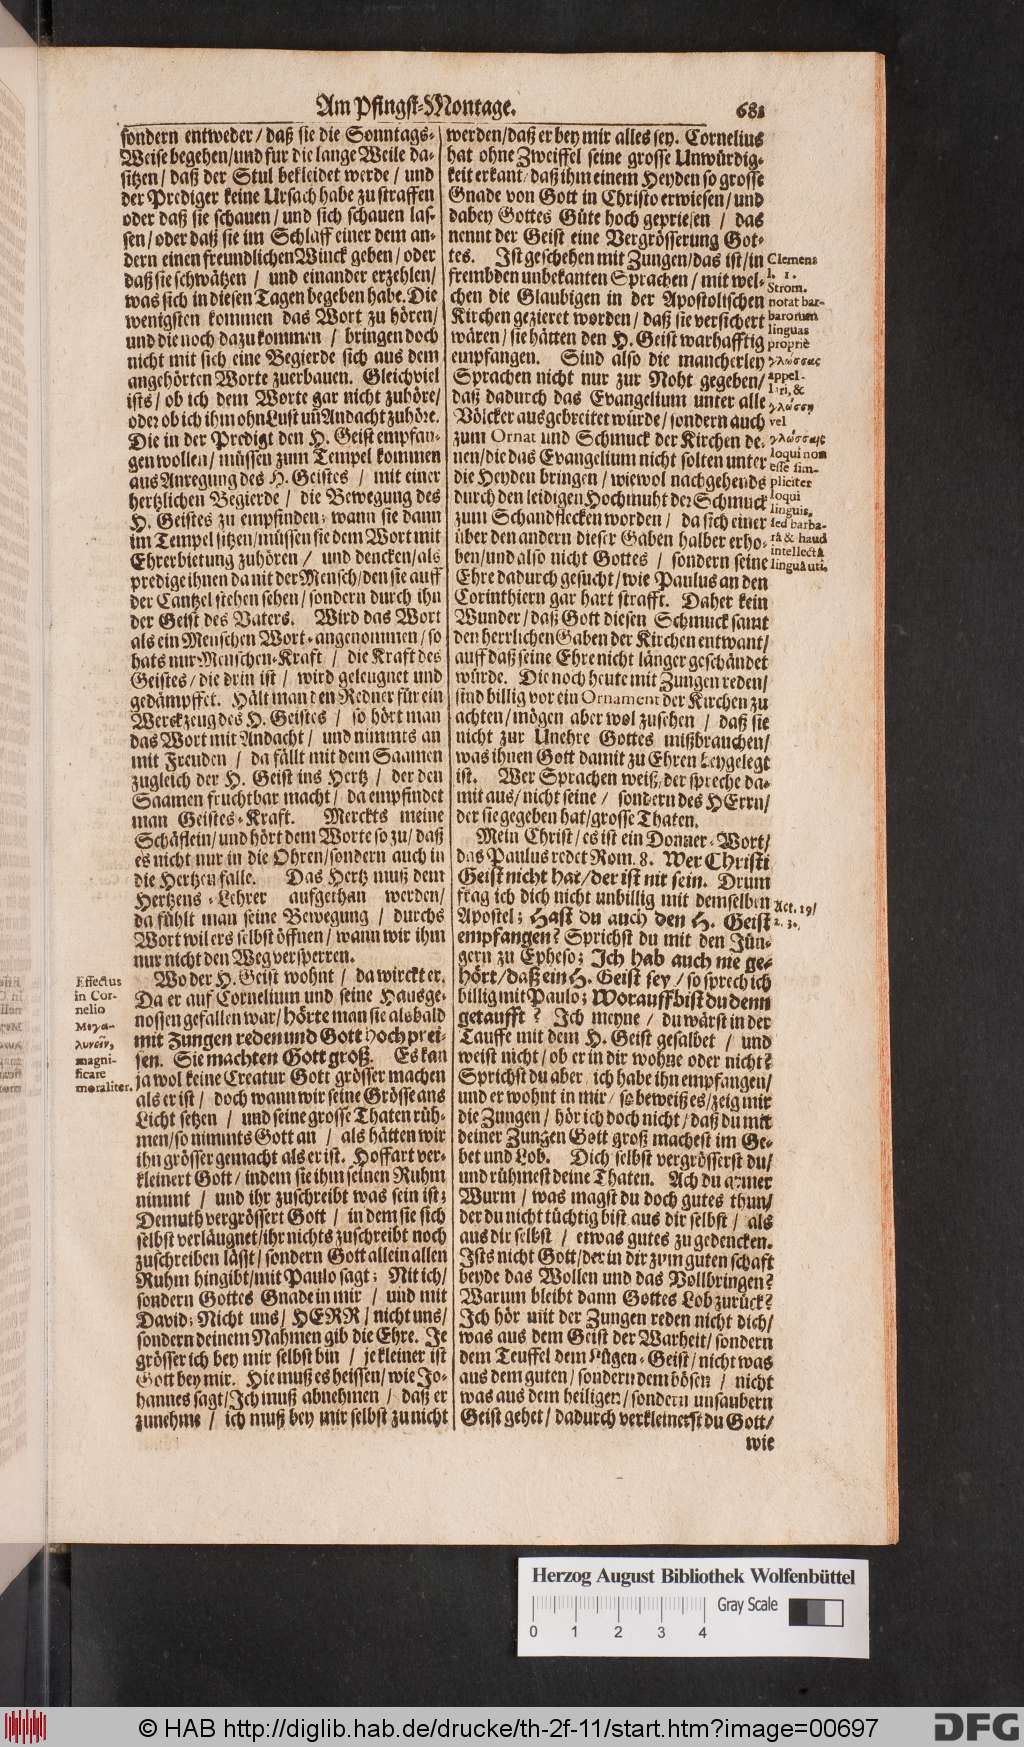 Am Pfingst-Montage. 681
sondern entweder/ daß sie die Sonntags-
Weise begehen/und fur die lange Weile da-
sitzen/ daß der Stul bekleidet werde / und
der Prediger keine Ursach habe zu straffen
oder daß sie schauen / und sich schauen las-
sen/ oder daß sie im Schlaff einer dem an-
dern einen freundlichen Winck geben / oder
daß sie schwätzen / und einander erzehlen/
was sich in diesen Tagen begeben habe. Die
wenigsten kommen das Wort zu hören/
und die noch dazu kommen / bringen doch
nicht mit sich eine Begierde sich aus dem
angehörten Worte zuerbauen. Gleich viel
ists/ ob ich dem Worte gar nicht zuhöre/
oder ob ich ihm ohn Lust uñ Andacht zuhöre.
Die in der Predigt den H. Geist empfan-
gen wollen/ müssen zum Tempel kommen
aus Anregung des H. Geistes / mit einer
hertzlichen Begierde / die Bewegung des
H. Geistes zu empfinden; wann sie dann
im Tempel sitzen/müssen sie dem Wort mit
Ehrerbietung zuhören / und dencken/als
predige ihnen da nit der Mensch/den sie auff
der Cantzel stehen sehen/ sondern durch ihn
der Geist des Vaters. Wird das Wort
als ein Menschen Wort angenommen / so
hats nur Menschen-Krafft / die Krafft des
Geistes / die drin ist / wird geleugnet und
gedämpffet. Hält man den Redner für ein
Werckzeug des H. Geistes / so hört man
das Wort mit Andacht / und nimmts an
mit Freuden / da fällt mit dem Saamen
zugleich der H. Geist ins Hertz / der den
Saamen fruchtbar macht / da empfindet
man Geistes-Kraft. Merckts meine
Schäflein/und hört dem Worte so zu/ daß
es nicht nur in die Ohren/sondern auch in
die Hertzen falle. Das Hertz muß dem
Hertzens-Lehrer aufgethan werden/
da fühlt man seine Bewegung / durchs
Wort wil ers selbst öffnen/ wann wir ihm
nur nicht den Weg versperren.
Wo der H. Geist wohnt / da wirckt er.
Da er auf Cornelium und seine Hausge-
nossen gefallen war/ hörte man sie alsbald
mit Zungen reden und Gott hoch prei-
sen. Sie machten Gott groß. Es kan
ja wol keine Creatur Gott grösser machen
als er ist / doch wann wir seine Grösse ans
Licht setzen / und seine grosse Thaten rüh-
men/so nimmts Gott an / als hätten wir
ihn grösser gemacht als er ist. Hoffart ver-
kleinert Gott/ indem sie ihm seinen Ruhm
nimmt / und ihr zuschreibt was sein ist;
Demuth vergrössert Gott / in dem sie sich
selbst verläugnet/ihr nichts zuschreibt noch
zuschreiben lässt/ sondern Gott allein allen
Ruhm hingibt/mit Paulo sagt; Nit ich/
sondern Gottes Gnade in mir / und mit
David; Nicht uns/ HERR/ nicht uns/
sondern deinem Nahmen gib die Ehre. Je
grösser ich bey mir selbst bin / je kleiner ist
Gott bey mir. Hie muß es heissen/ wie Jo-
hannes sagt/Ich muß abnehmen / daß er
zunehme / ich muß bey mir selbst zu nicht
Effectus
in Cor-
nelio
Μεγα-
λυνεῖν,
magni-
ficare
moraliter.
werden/ daß er bey mir alles sey. Cornelius
hat ohne Zweiffel seine grosse Unwürdig-
keit erkant/ daß ihm einem Heyden so grosse
Gnade von Gott in Christo erwiesen/ und
dabey Gottes Güte hoch gepriesen / das
nennt der Geist eine Vergrösserung Got-
tes. Ist geschehen mit Zungen/das ist/in
frembden unbekanten Sprachen / mit wel-
chen die Glaubigen in der Apostolischen
Kirchen gezieret worden/ daß sie versichert
wären/ sie hätten den H. Geist warhafftig
empfangen. Sind also die mancherley
Sprachen nicht nur zur Noht gegeben/
daß dadurch das Evangelium unter alle
Völcker ausgebreitet würde/ sondern auch
zum Ornat und Schmuck der Kirchen de-
nen/die das Evangelium nicht solten unter
die Heyden bringen / wiewol nachgehends
durch den leidigen Hochmuht der Schmuck
zum Schandflecken worden / da sich einer
über den andern dieser Gaben halber erho-
ben/und also nicht Gottes / sondern seine
Ehre dadurch gesucht/ wie Paulus an den
Corinthiern gar hart strafft. Daher kein
Wunder/ daß Gott diesen Schmuck samt
den herrlichen Gaben der Kirchen entwant/
auff daß seine Ehre nicht länger geschändet
würde. Die noch heute mit Zungen reden/
sind billig vor ein Ornament der Kirchen zu
achten/ mögen aber wol zusehen / daß sie
nicht zur Unehre Gottes mißbrauchen/
was ihnen Gott damit zu Ehren beygelegt
ist. Wer Sprachen weiß/ der spreche da-
mit aus/ nicht seine / sondern des HErrn/
der sie gegeben hat/ grosse Thaten.
Mein Christ/ es ist ein Donner-Wort/
das Paulus redet Rom. 8. Wer Christi
Geist nicht hat/ der ist nit sein. Drum
frag ich dich nicht unbillig mit demselben
Apostel; Hast du auch den H. Geist
empfangen? Sprichst du mit den Jün-
gern zu Epheso; Ich hab auch nie ge-
hört/ daß ein H. Geist sey/ so sprech ich
billig mit Paulo; Worauff bist du denn
getaufft? Ich meyne / du wärst in der
Tauffe mit dem H. Geist gesalbet / und
weist nicht/ ob er in dir wohne oder nicht?
Sprichst du aber/ ich habe ihn empfangen/
und er wohnt in mir/ so beweiß es/zeig mir
die Zungen / hör ich doch nicht/ daß du mit
deiner Zungen Gott groß machest im Ge-
bet und Lob. Dich selbst vergrösserst du/
und rühmest deine Thaten. Ach du armer
Wurm / was magst du doch gutes thun/
der du nicht tüchtig bist aus dir selbst / als
aus dir selbst / etwas gutes zu gedencken.
Ists nicht Gott/ der in dir zum guten schaft
beyde das Wollen und das Vollbringen?
Warum bleibt dann Gottes Lob zurück?
Ich hör mit der Zungen reden nicht dich/
was aus dem Geist der Warheit/ sondern
dem Teuffel dem Lügen-Geist/ nicht was
aus dem guten/ sondern dem bösen / nicht
was aus dem heiligen/ sondern unsaubern
Geist gehet/ dadurch verkleinerst du Gott/
wie
Clemens
l. 1.
Strom.
notat bar-
barorum
linguas
propriè
γλώσσας
appel-
lari, &
γλώσσῃ
vel
γλώσσαις
loqui non
esse sim-
pliciter
loqui
linguis,
sed barba-
râ & haud
intellectâ
linguâ uti.
Act. 19/
2. 3.
Herzog August Bibliothek Wolfenbüttel
Gray Scale
0 1 2 3 4
© HAB http://diglib.hab.de/drucke/th-2f-11/start.htm?image=00697
DFG